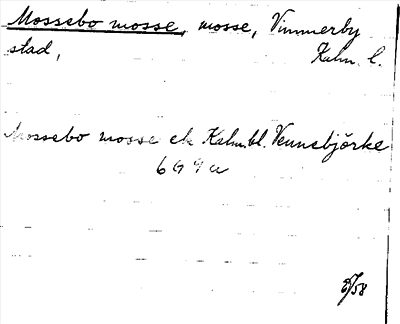 Mossebo mosse, mosse, Vimmerby
stad, Kalm. l.
Mossebo mosse ek Kalm.bl. Vennebjörke
6 G 9 a
/58